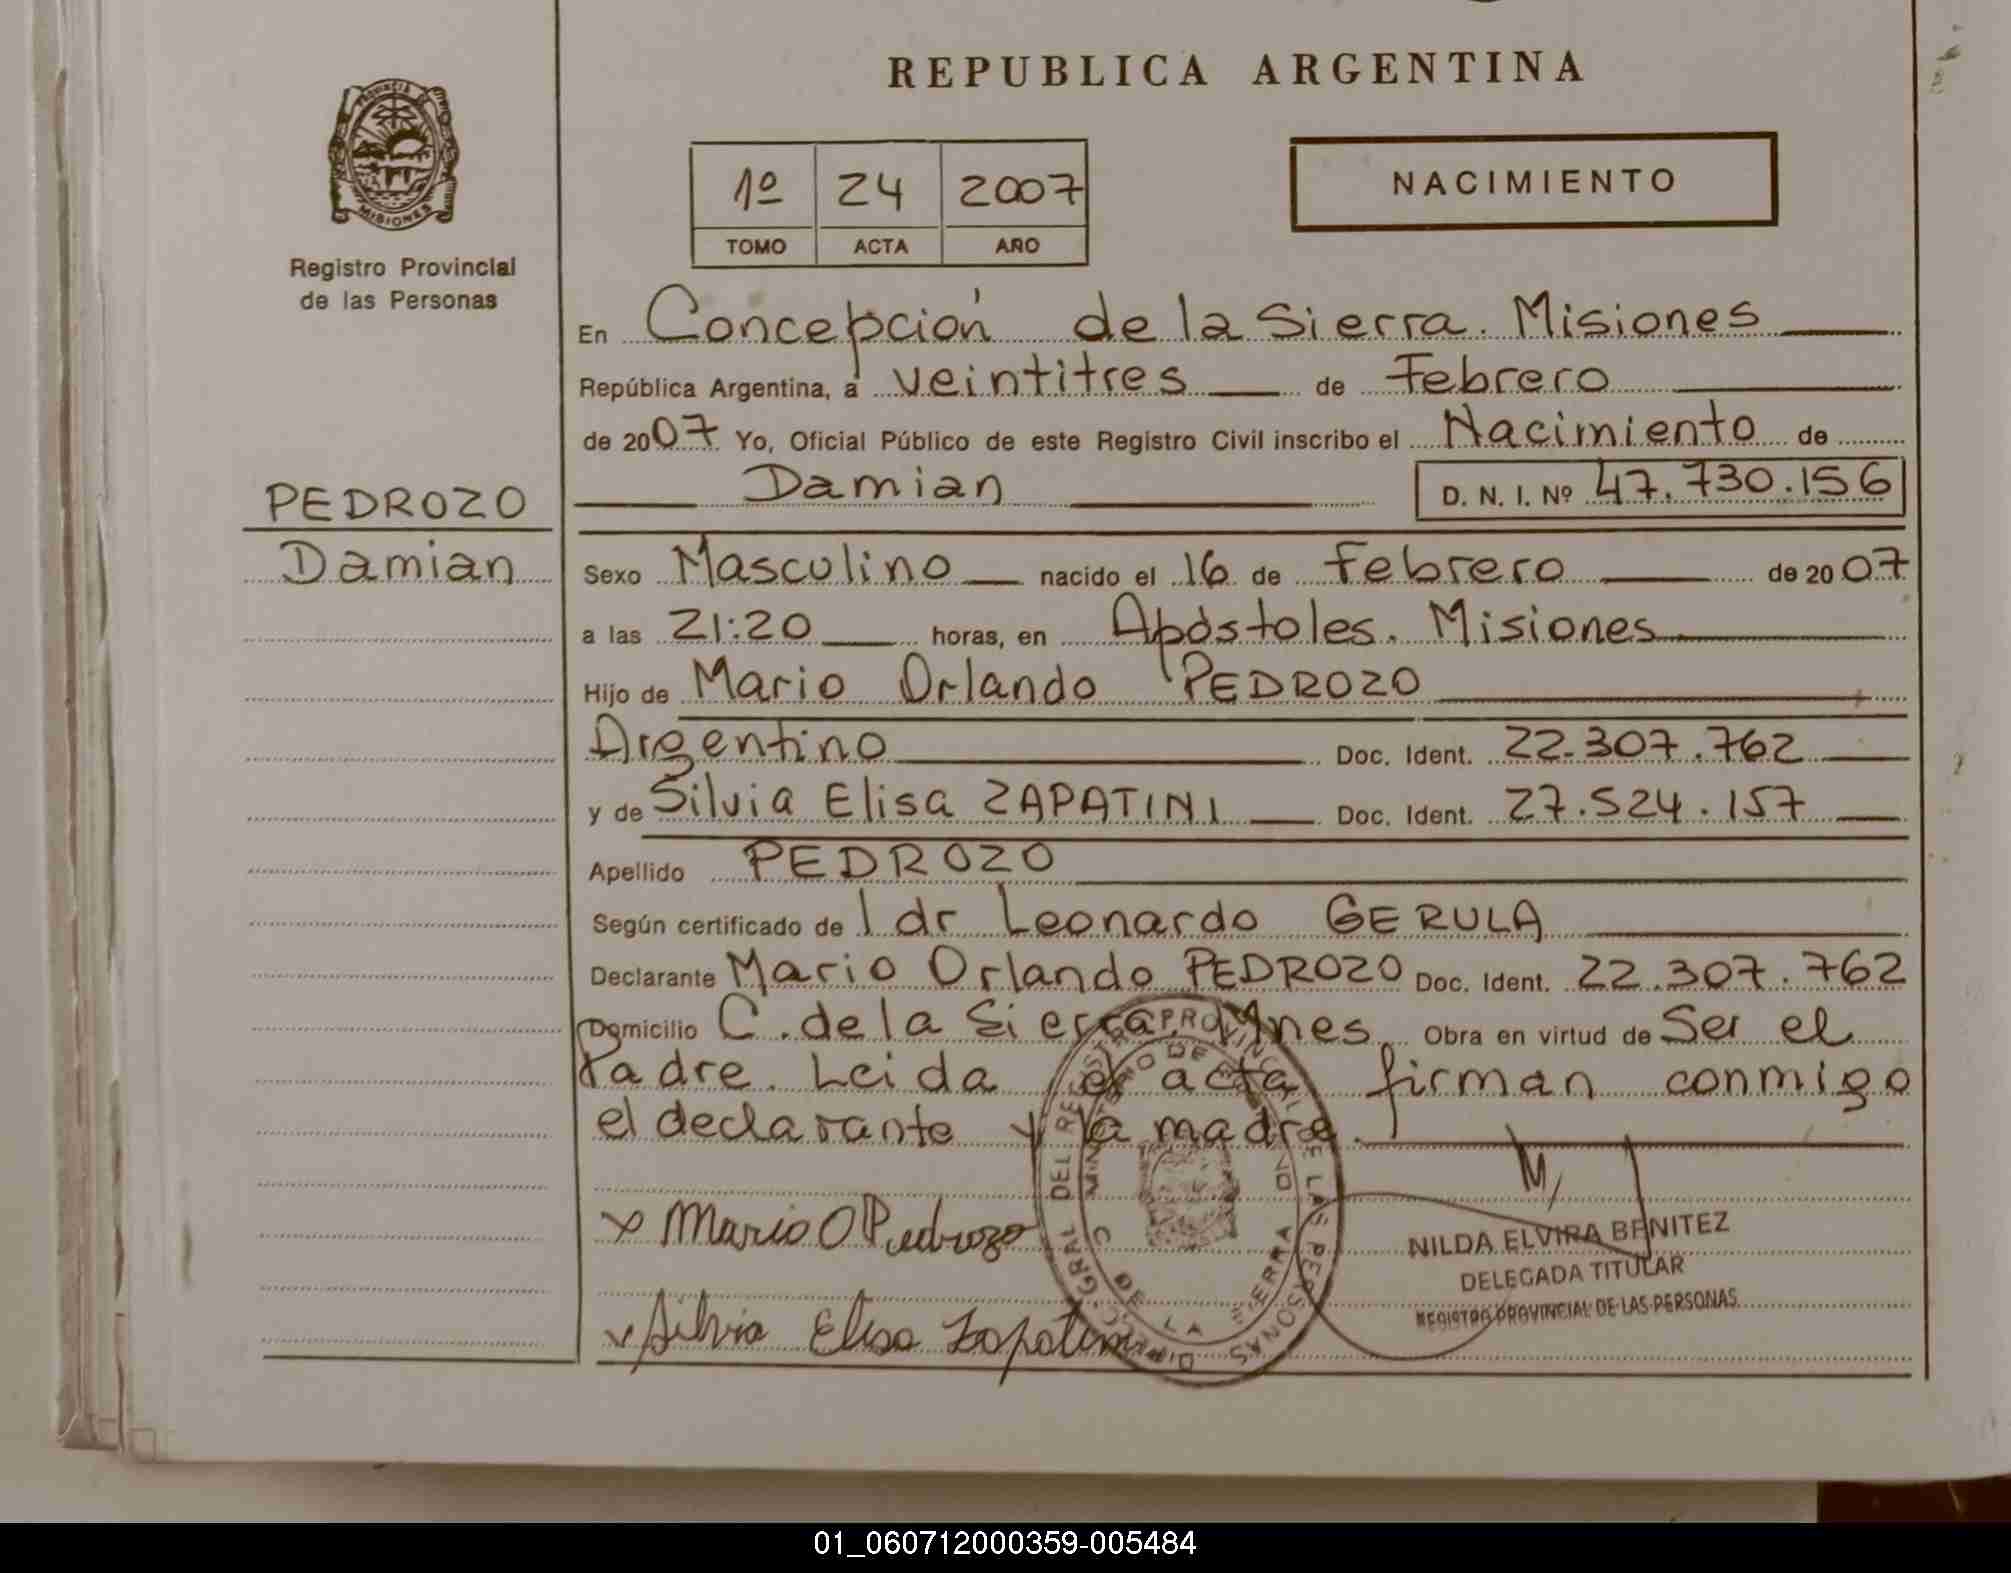 REPUBLICA ARGENTINA
PROVINCIA DE
MISIONES
Registro Provincial
de las Personas
1º 24 2007
TOMO ACTA AÑO
NACIMIENTO
En Concepción de la Sierra. Misiones
República Argentina, a veintitres de Febrero
de 2007 Yo, Oficial Público de este Registro Civil inscribo el Nacimiento de
Damian D. N. I. Nº 47.730.156
PEDROZO
Damian
Sexo Masculino nacido el 16 de Febrero de 2007
a las 21:20 horas, en Apóstoles. Misiones
Hijo de Mario Orlando PEDROZO
Argentino Doc. Ident. 22.307.762
y de Silvia Elisa ZAPATINI Doc. Ident. 27.524.157
Apellido PEDROZO
Según certificado de l dr Leonardo GERULA
Declarante Mario Orlando PEDROZO Doc. Ident. 22.307.762
Domicilio C. de la Sierra. Mnes. Obra en virtud de Ser el
Padre. Leida el acta firman conmigo
el declarante y la madre.
x Mario O Pedrozo
x Silvia Elisa Zapatini
DIREC. GRAL DEL REGISTRO PROVINCIAL DE LAS PERSONAS
NILDA ELVIRA BENITEZ
DELEGADA TITULAR
REGISTRO PROVINCIAL DE LAS PERSONAS
01_060712000359-005484